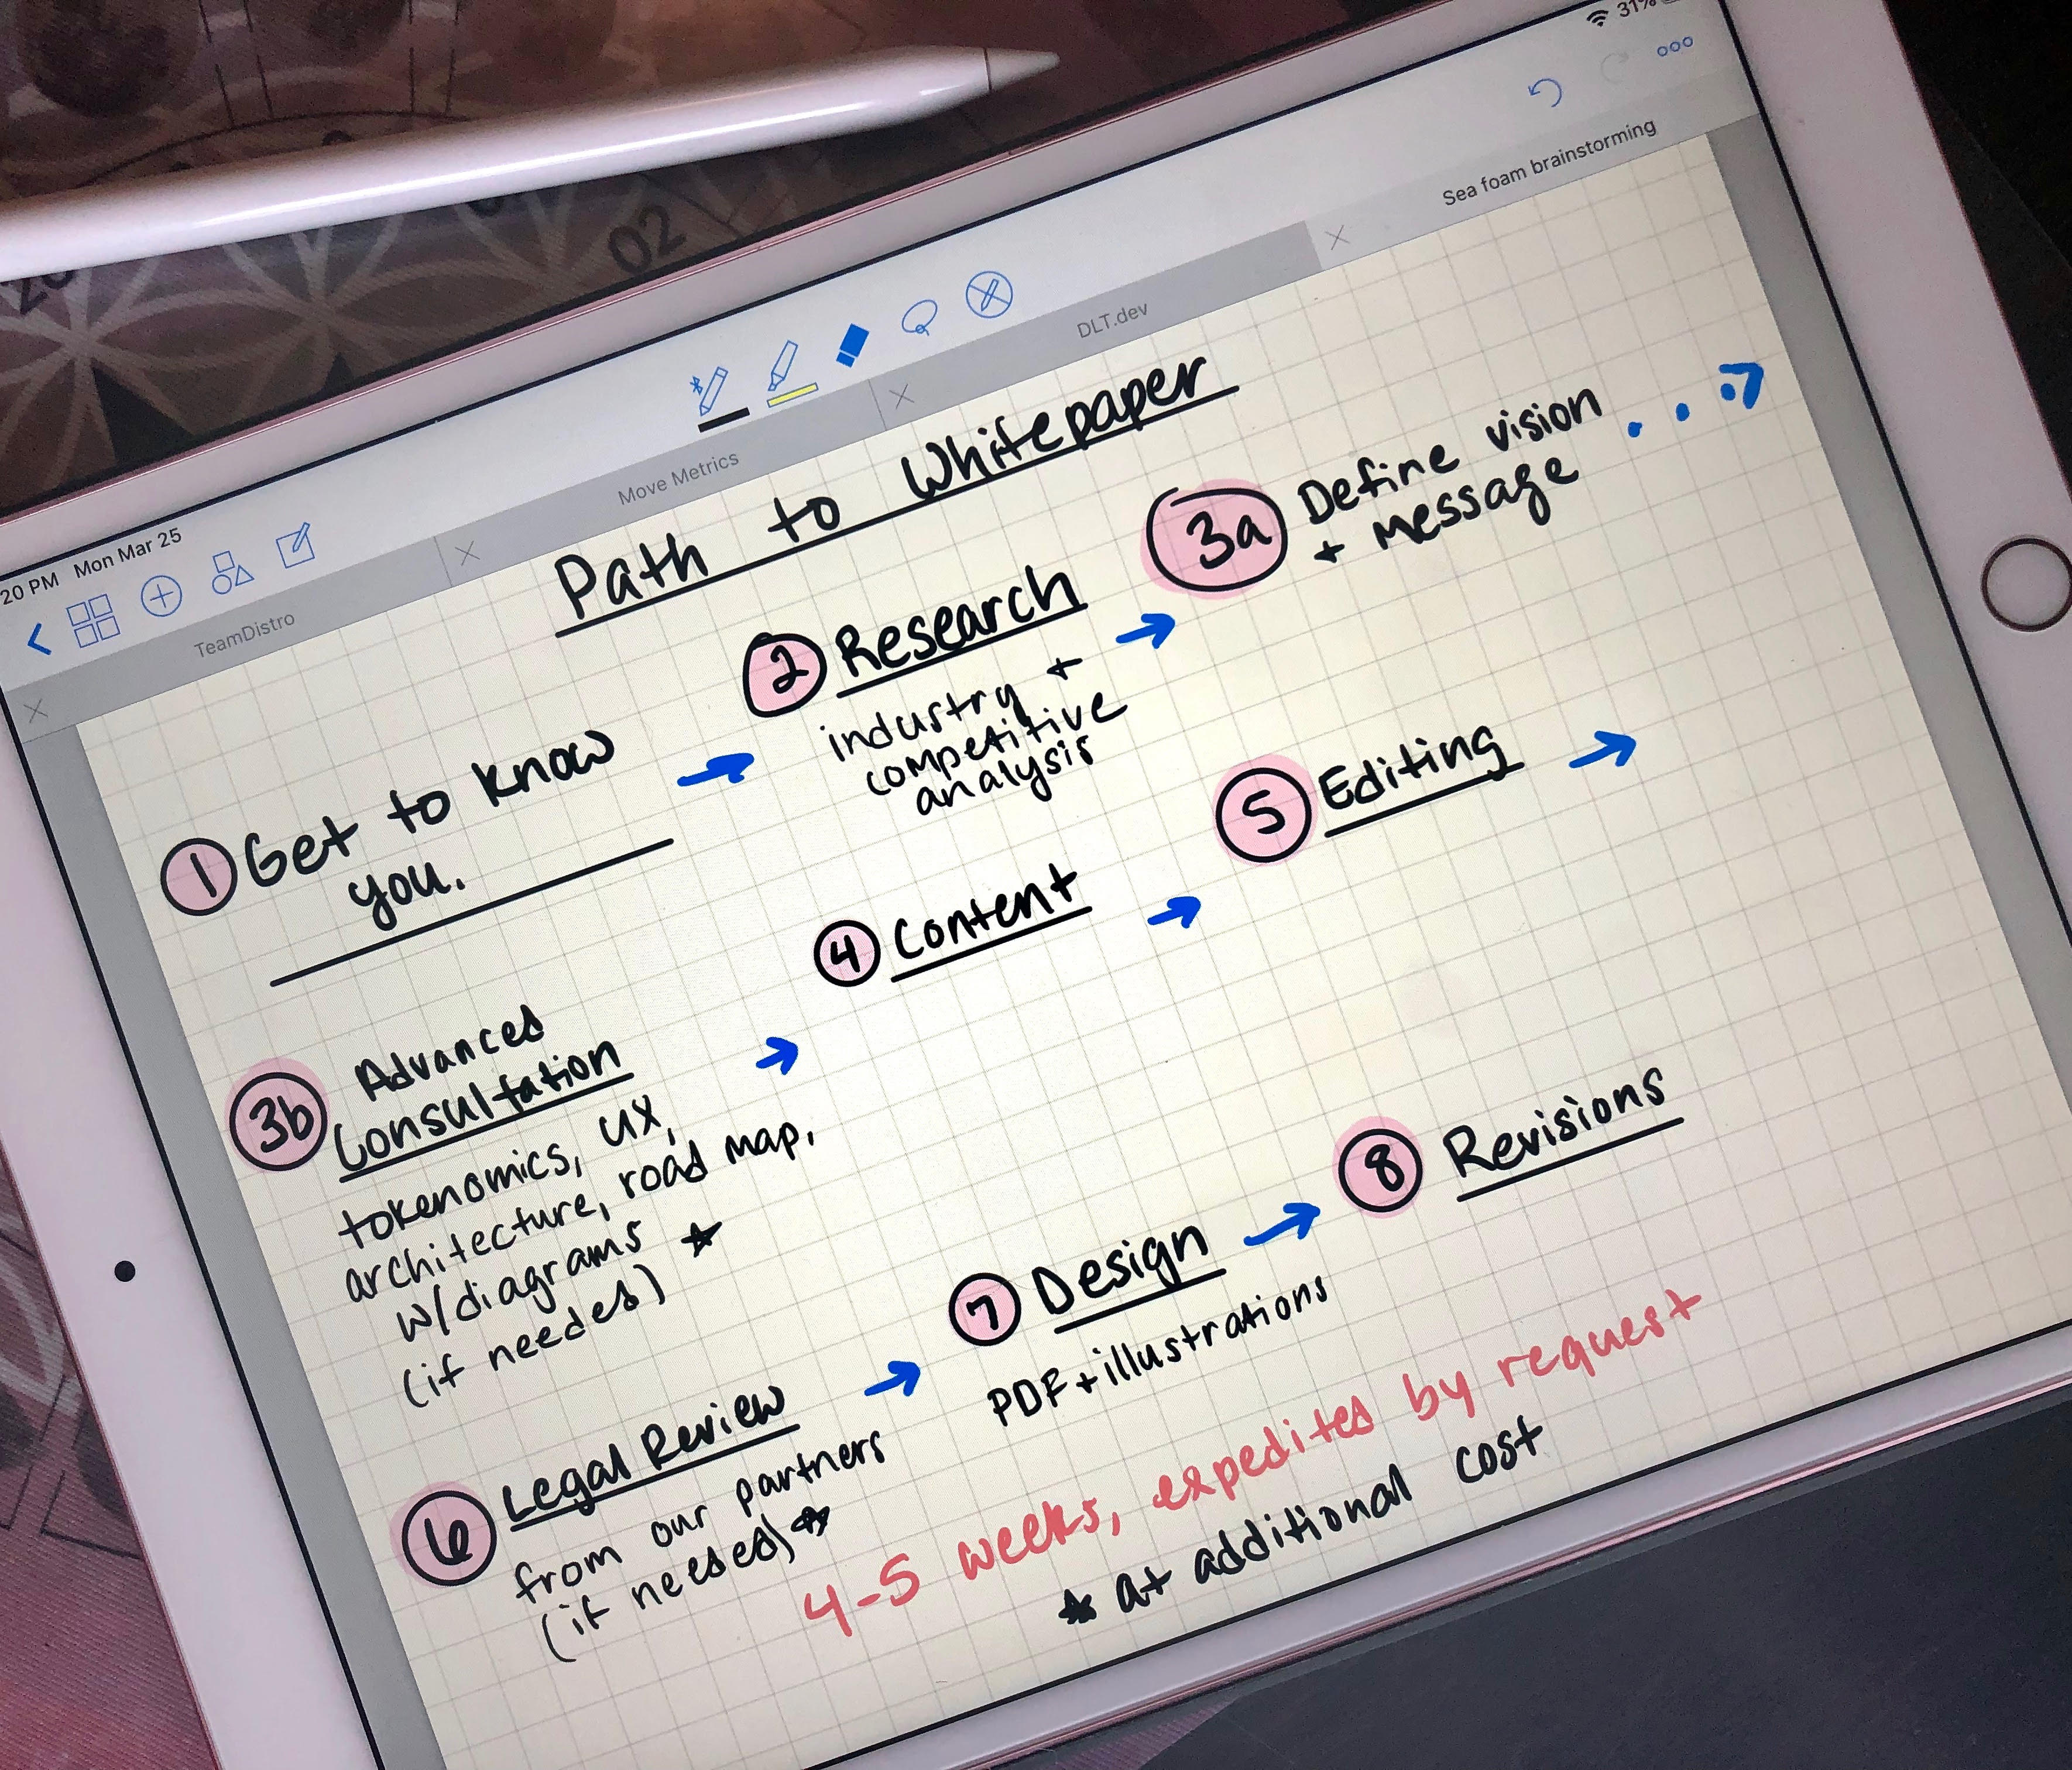 31%
20 PM Mon Mar 25
TeamDistro
Move Metrics
DLT.dev
Sea foam brainstorming
02
Path to Whitepaper
1 Get to know
you.
2 Research
industry +
competitive
analysis
3a Define vision
+ message
3b Advanced
Consultation
tokenomics, UX,
architecture, road map,
w/diagrams
(if needed) ★
4 Content
5 Editing
6 Legal Review
from our partners
(if needed) ★
7 Design
PDF + illustrations
8 Revisions
4-5 weeks, expedited by request
★ at additional cost